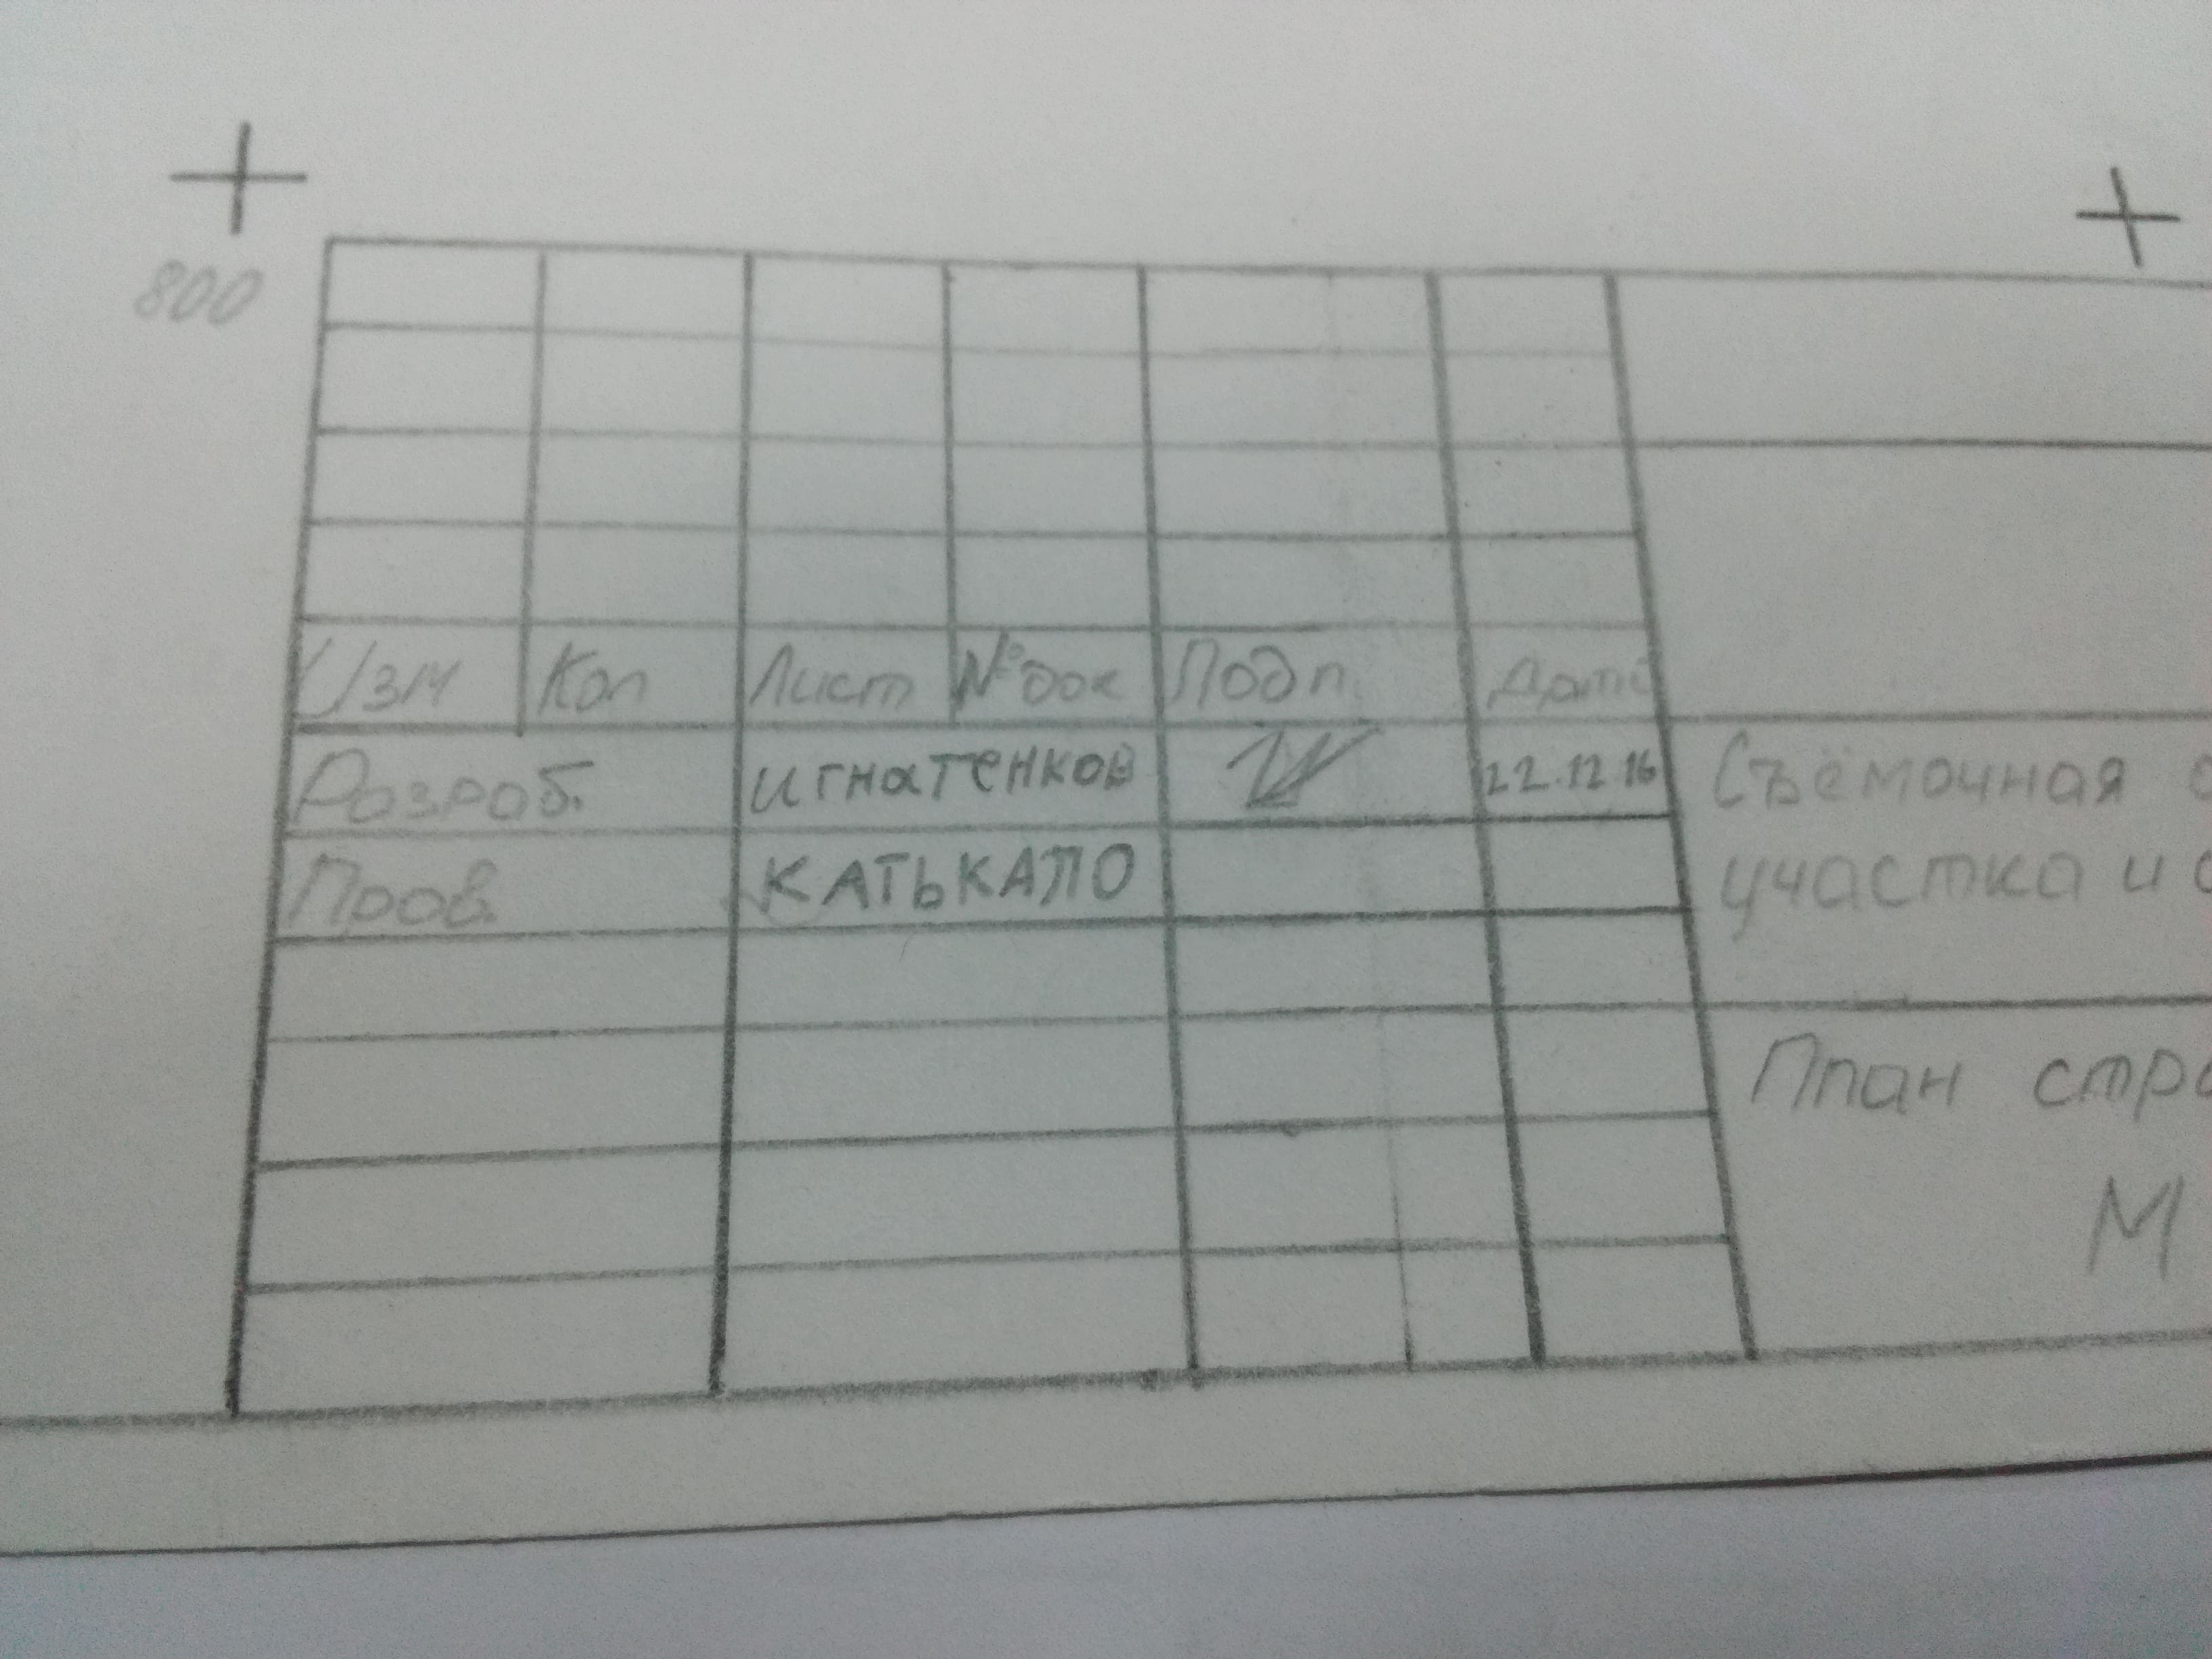 800
Изм Кол Лист №док Подп. Дата
Розраб. Игнатенков 22.12.16
Пров. КАТЬКАЛО
Съёмочная
участка и
План
М